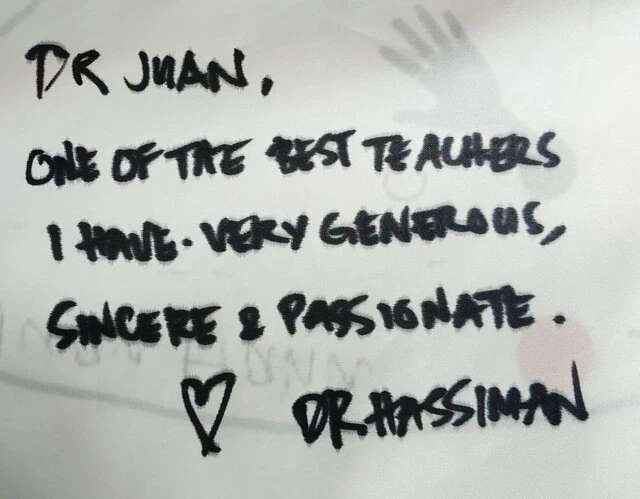 DR JUAN,
ONE OF THE BEST TEACHERS
I HAVE. VERY GENEROUS,
SINCERE & PASSIONATE.
♡ DR HASSIMAN